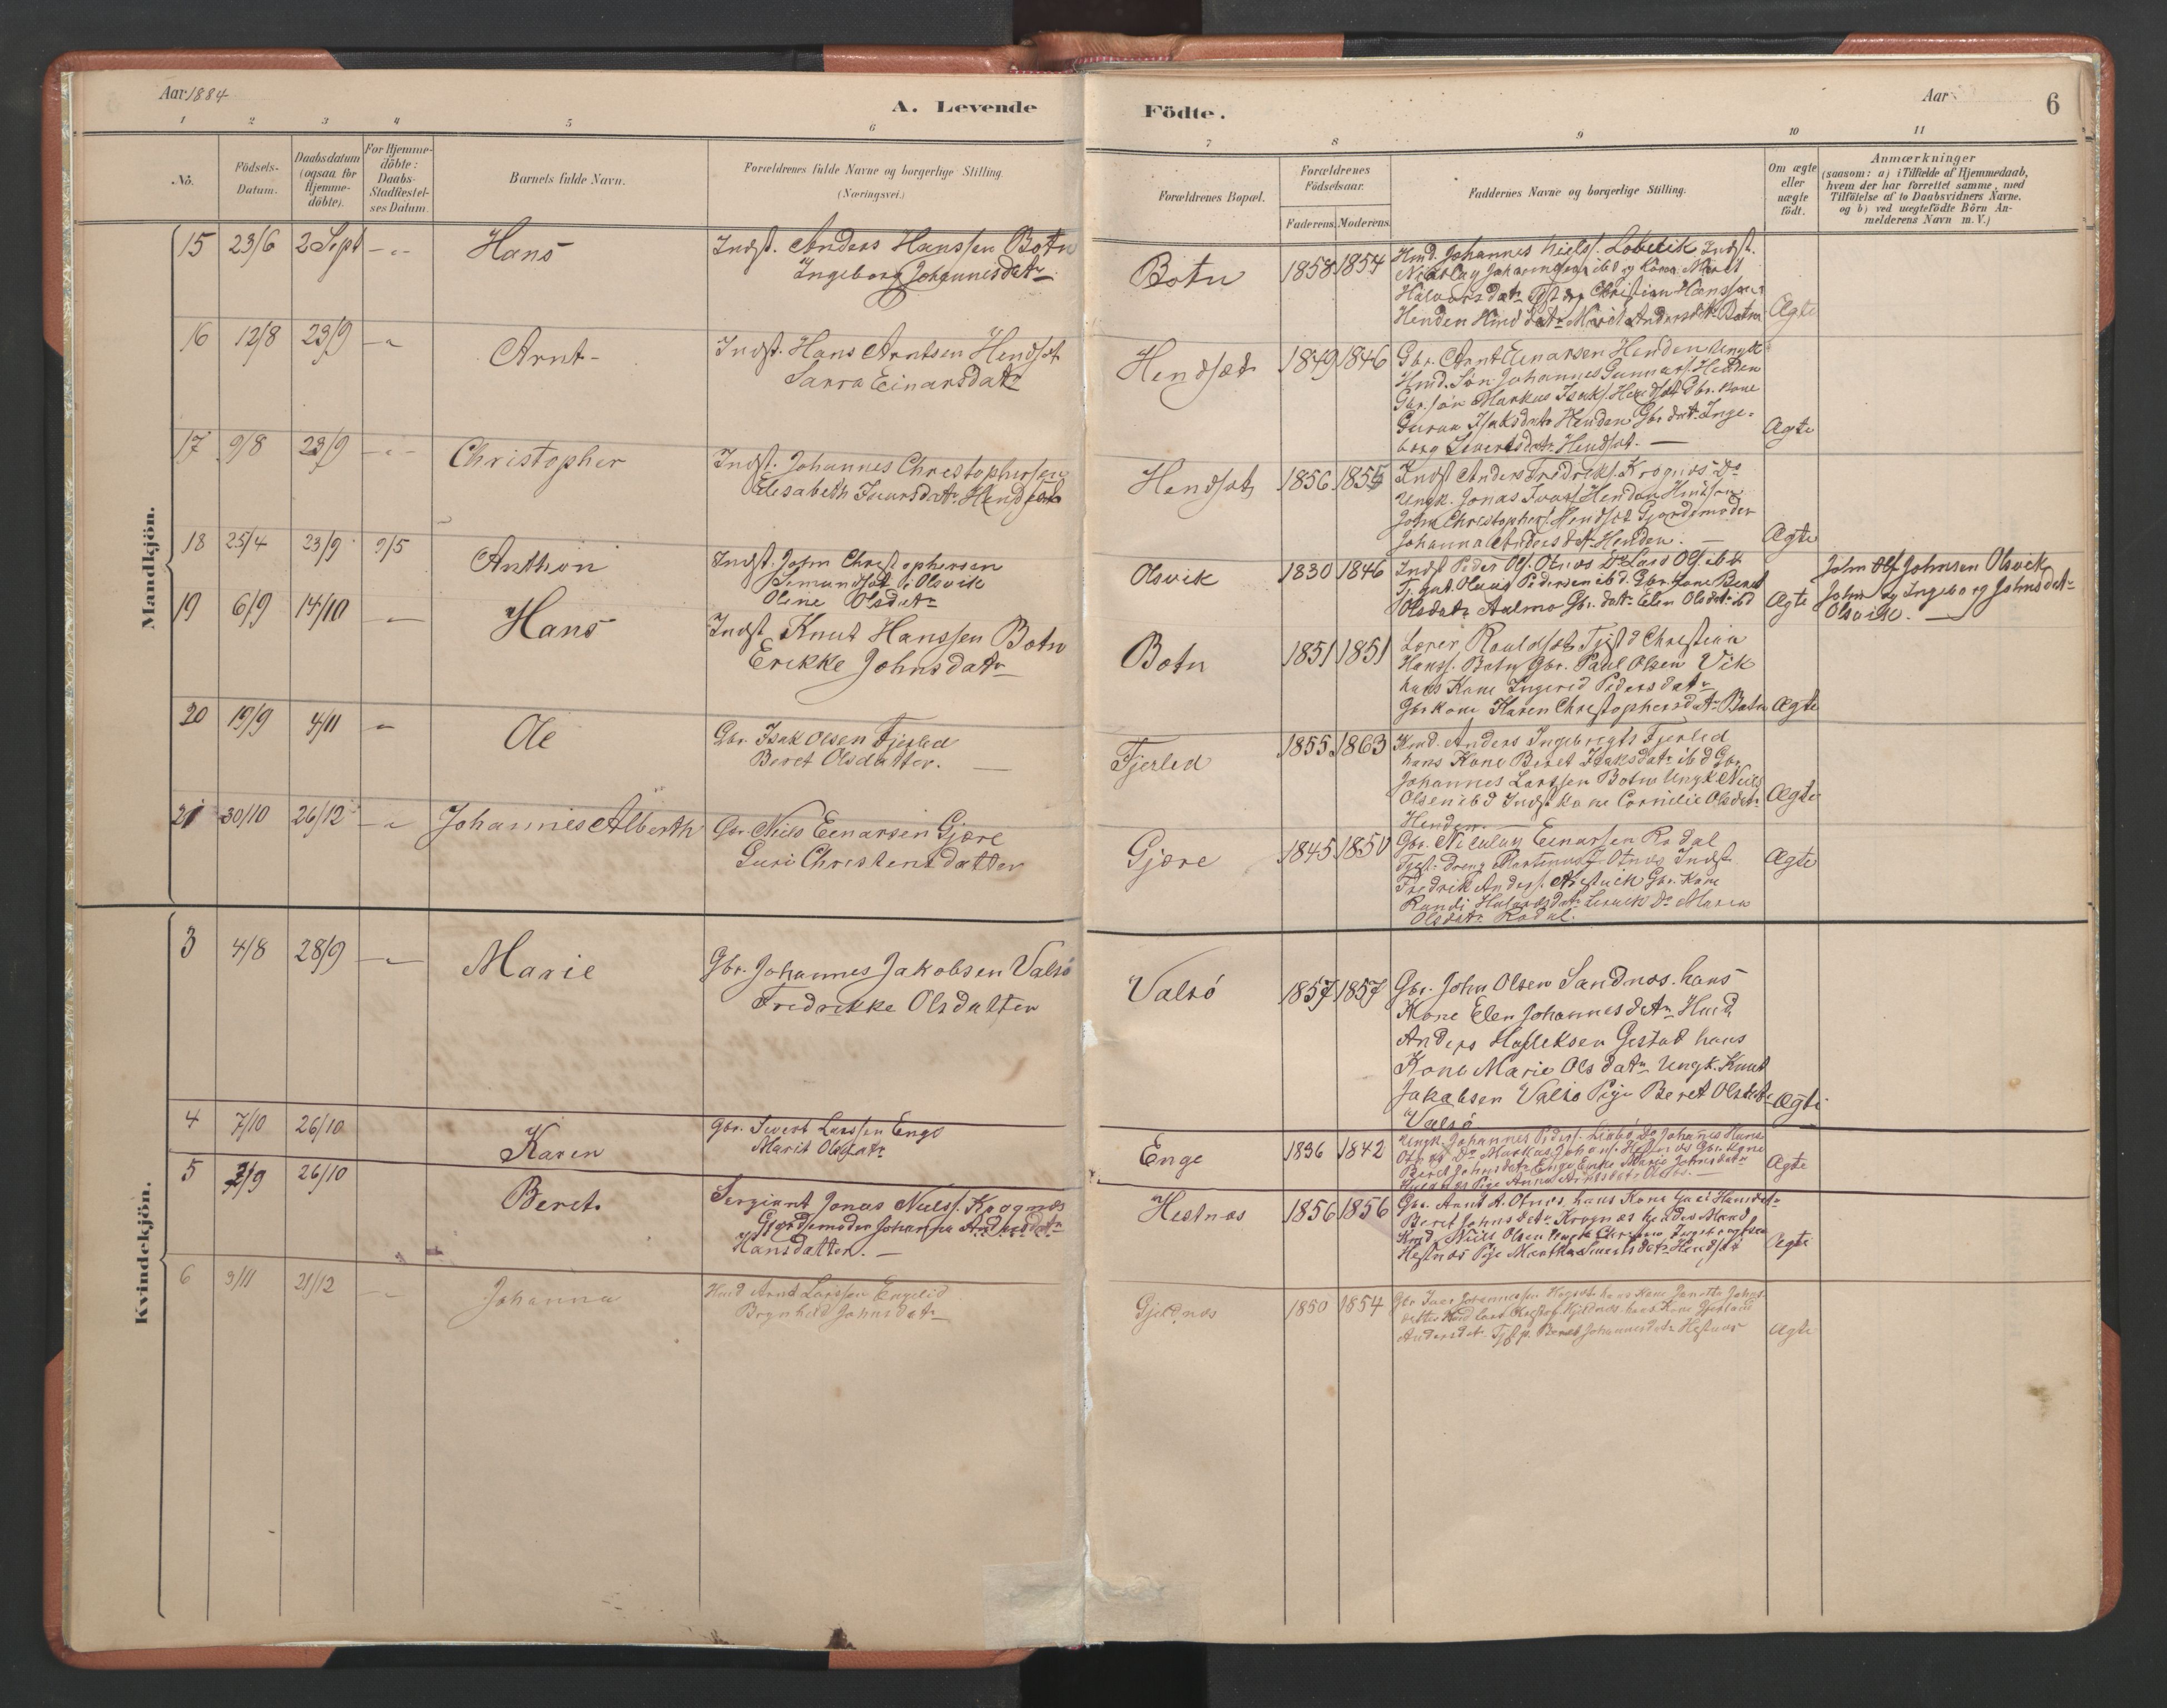 Aar 1884
A. Levende
Födte.
Aar
6
1 2 3 4 5 6 7 8 9 10 11
No.
Födsels-
Datum.
Daabsdatum
(ogsaa for
Hjemme-
döbte).
For Hjemme-
döbte:
Daabs-
Stadfæstel-
ses Datum.
Barnets fulde Navn.
Forældrenes fulde Navne og borgerlige Stilling.
(Næringsvei.)
Forældrenes Bopæl.
Forældrenes
Födselsaar.
Faderens. Moderens.
Faddernes Navne og borgerlige Stilling.
Om ægte
eller
uægte
födt.
Anmærkninger
(saasom: a) i Tilfælde af Hjemmedaab,
hvem der har forrettet samme, med
Tilföielse af to Daabsvidners Navne,
og b) ved uægtefödte Börn An-
melderens Navn m. V.)
Mandkjön.
15 23/6 2 Sept - Hans
Indst. Anders Hanssen Botn
Ingeborg Johannesdatr
Botn 1858 1854
Hmd. Johannes Niels. Indst.
Nikolay ibd og Kone Marit
Christian Hanssen
Henden Marit Andersdtr Botn Ægte
16 12/8 23/9 Arnt
Indst. Hans Arntsen Hendset
Sarra Einarsdatr
Hendset 1849 1846
Gbr. Arnt Einarsen Henden Ungk
Hmd. Søn Johannes Gunnars. Henden
Gbr. søn Markus Isaks. Hendset Gbr. Kone
Guruu Isaksdatr Henden Gbr. dat. Inge-
borg Sivertsdatr Hendset. Ægte
17 9/8 23/9 Christopher
Indst. Johannes Christophersen
Elesabeth Ivarsdatr Hendset
Hendset 1856 1855
Indst Anders Fredriks. Krognes Do
Ungk. Jonas Ivars. Henden
John Christophers. Hendset Gjordemoder
Johanna Andersdtr Henden. Ægte
18 25/4 23/9 9/5 Anthon
Indst. John Christophersen
Olsvik
Oline Olsdatr
Olsvik 1830 1846
Indst Peder Ols. Otnes Do Lars Ols. ibd
Tj. gut. Olaus Pedersen ibd. Gbr. Kone Beret
Olsdatr Aalmo Gbr. datr Elen Olsdtr ibd Ægte
John Johnsen Olsvik
John og Ingeborg Johnsdatr
Olsvik.
19 6/9 14/10 Hans
Indst. Knut Hanssen Botn
Erikke Johnsdatr
Botn 1851 1851
Christian
Hanss. Botn Gbr. Paul Olsen Vik
hans Kone Ingerid Pedersdatr
Gbr kone Karen Christophersdatr Botn Ægte
20 19/9 4/11 Ole
Gbr. Isak Olsen Fjerled
Beret Olsdatter.
Fjerled 1855 1863
Hmd. Anders Ingebrigts. Fjerled
hans Kone Beret Isaksdatr ibd Gbr.
Johannes Larssen Botn Ungk Niels
Olsen ibd Indst. kone Cornelie Olsdatr
Henden. Ægte
21 30/10 26/12 Johannes Alberth
Gbr. Niels Einarsen Gjøre
Guri Christensdatter
Gjøre 1845 1850
Gbr. Nicolay Einarsen Rodal
Tjst. dreng Martinus Otnes Indst.
Fredrik Anders. Gbr. Kone
Randi Do Maren
Olsdatr Rodal. Ægte
Kvindekjön.
3 4/8 28/9 Marie
Gbr. Johannes Jakobsen Valsø
Fredrikke Olsdatter
Valsö 1857 1857
Gbr. John Olsen Sandnes. hans
Kone Elen Johannesdatr Hmd
Anders Gistad hans
Kone Marie Olsdatr Ungk. Knut
Jakobsen Valsø Pige Beret Olsdtr
Valsö Ægte
4 7/10 26/10 Karen
Gbr. Sivert Larssen Enge
Marit Olsdatr
Enge 1836 1842
Ungk. Johannes Peders. Do Johannes Hans.
Do Markus Johans. Gbr. Kone
Beret Johnsdatr Enge Enke Marie Johnsdatr
Pige Anne Ægte
5 2/9 26/10 Beret.
Sergiant Jonas Niels. Krognes
Gjordemoder Johanna Andersdatr
Hansdatter.
Hestnes 1856 1856
Gbr. Arnt A. Otnes, hans Kone Guri Hansdatr
Beret Johnsdatr Krognes hendes Mand
Niels Olsen Ungk Ingebrigtsen
Hestnes Pige Martha Sivertsdatr Hendset Ægte
6 3/11 21/12 Johanna
Hmd Arnt Larssen Engelid
Brynhild Johnsdatr
Gjeldnes 1850 1854
Gbr Iver Johannessen hans Kone Janette Johns-
datter Hmd Lars hans Kone
Andersdtr. Tjst. p. Beret Johannesdatr Hestnes Ægte